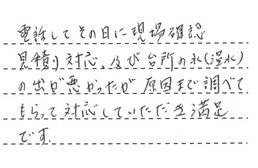 電話してその日に現場確認
見積り対応、及び台所の水(温水)
の出が悪かったが原因まで調べて
もらって対応していただき満足
です。